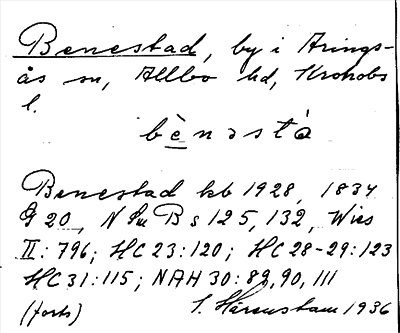 Benestad, by i Arings-
ås sn, Allbo hd, Kronobs
l.
bènəstà
Benestad kb 1928, 1834
G 20, N Sm B s 125, 132, Wies
II: 796; HC 23:120; HC 28-29:123
HC 31:115; NAH 30: 89, 90, 111
(forts) 1936